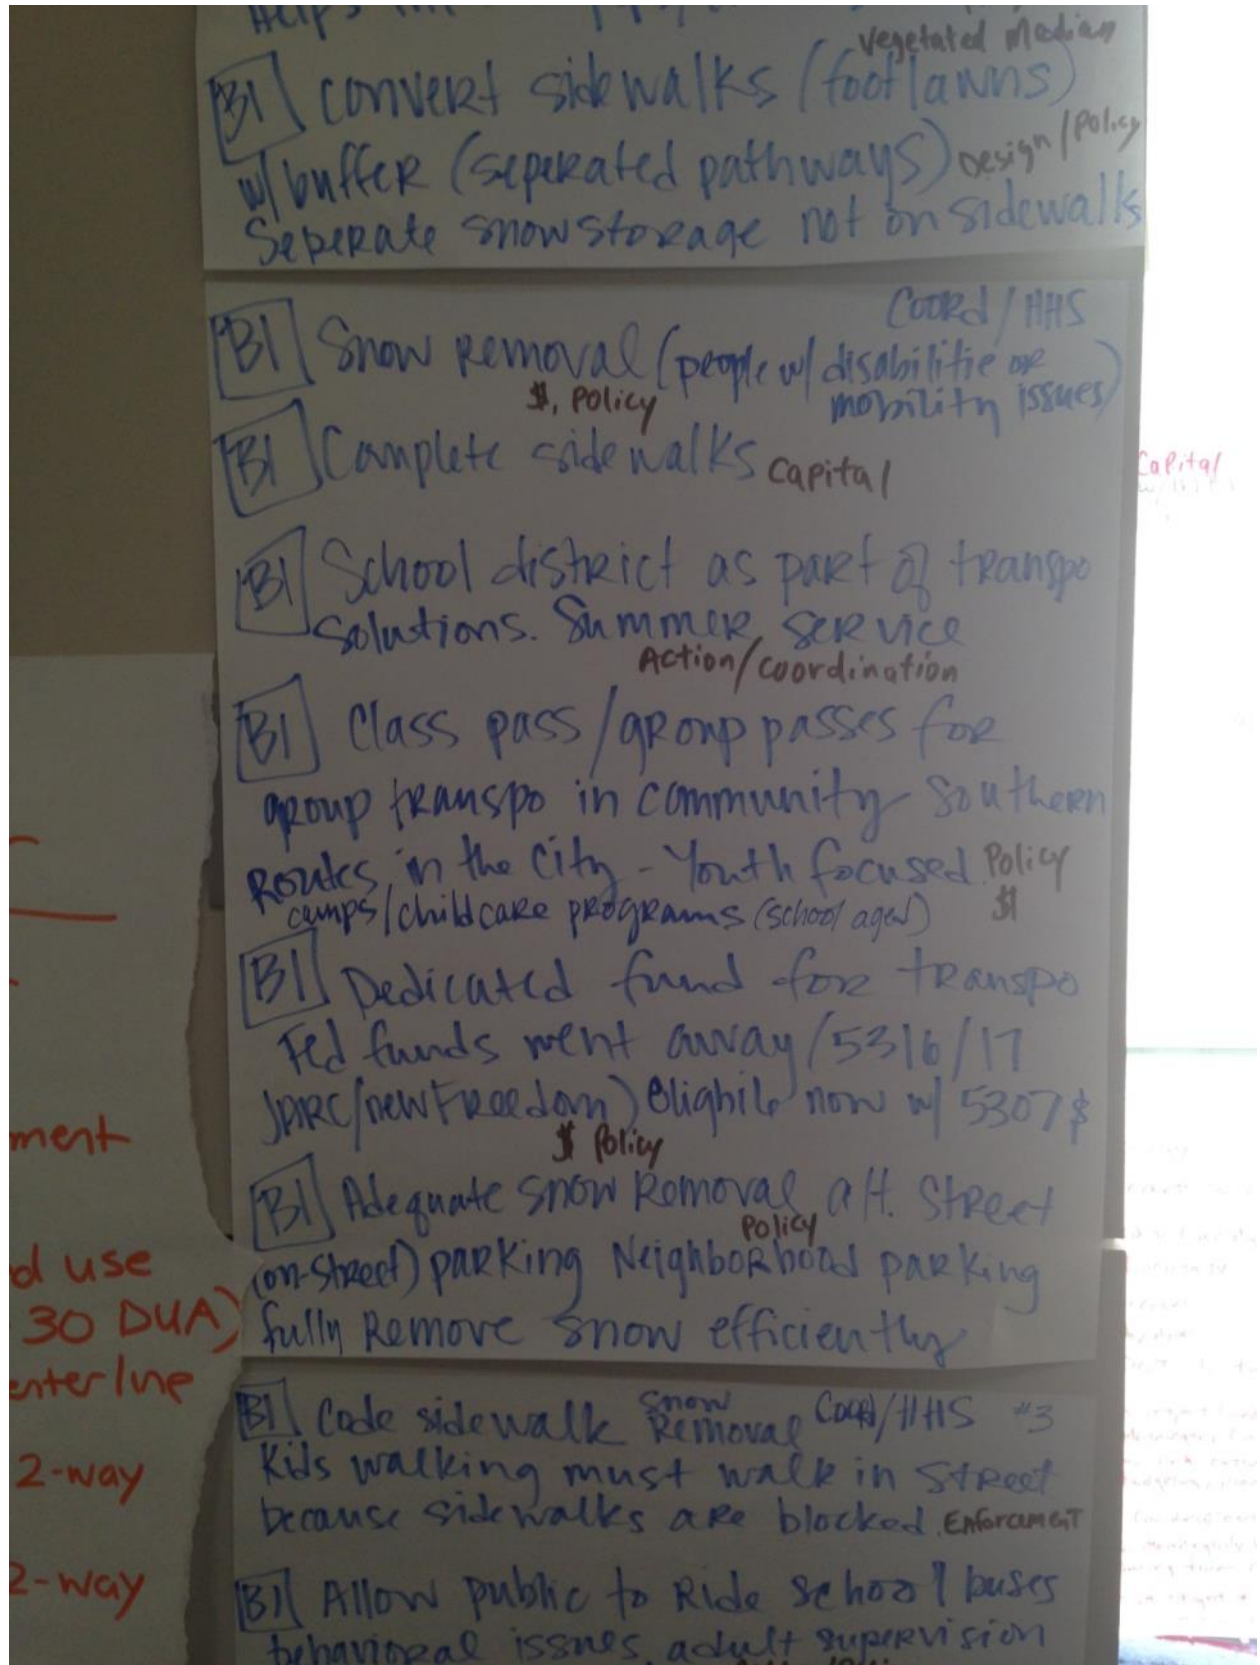 Helps
vegetated Median
B1 convert sidewalks (footlawns)
w/buffer (seperated pathways) Design/Policy
Seperate snow storage not on sidewalks
Coord/HHS
B1 Snow Removal (people w/ disabilitie or
mobility issues)
$, Policy
B1 Complete sidewalks Capital
B1 School district as part of transpo
solutions. Summer service
Action/coordination
B1 Class pass/group passes for
group transpo in community Southern
Routes in the City - Youth focused Policy
camps/childcare programs (school aged) $
B1 Dedicated fund for transpo
Fed funds went away/5316/17
JARC/new Freedom) Eligible now w/ 5307 $
$ Policy
B1 Adequate snow Removal alt. Street
Policy
(on-street) parking Neighborhood parking
fully Remove snow efficiently
B1 Code sidewalk snow Removal Coord/HHS #3
Kids walking must walk in Street
because sidewalks are blocked. Enforcement
B1 Allow public to Ride school buses
behavioral issues, adult supervision
ment
d use
30 DUA)
enterline
2-way
2-way
Capital